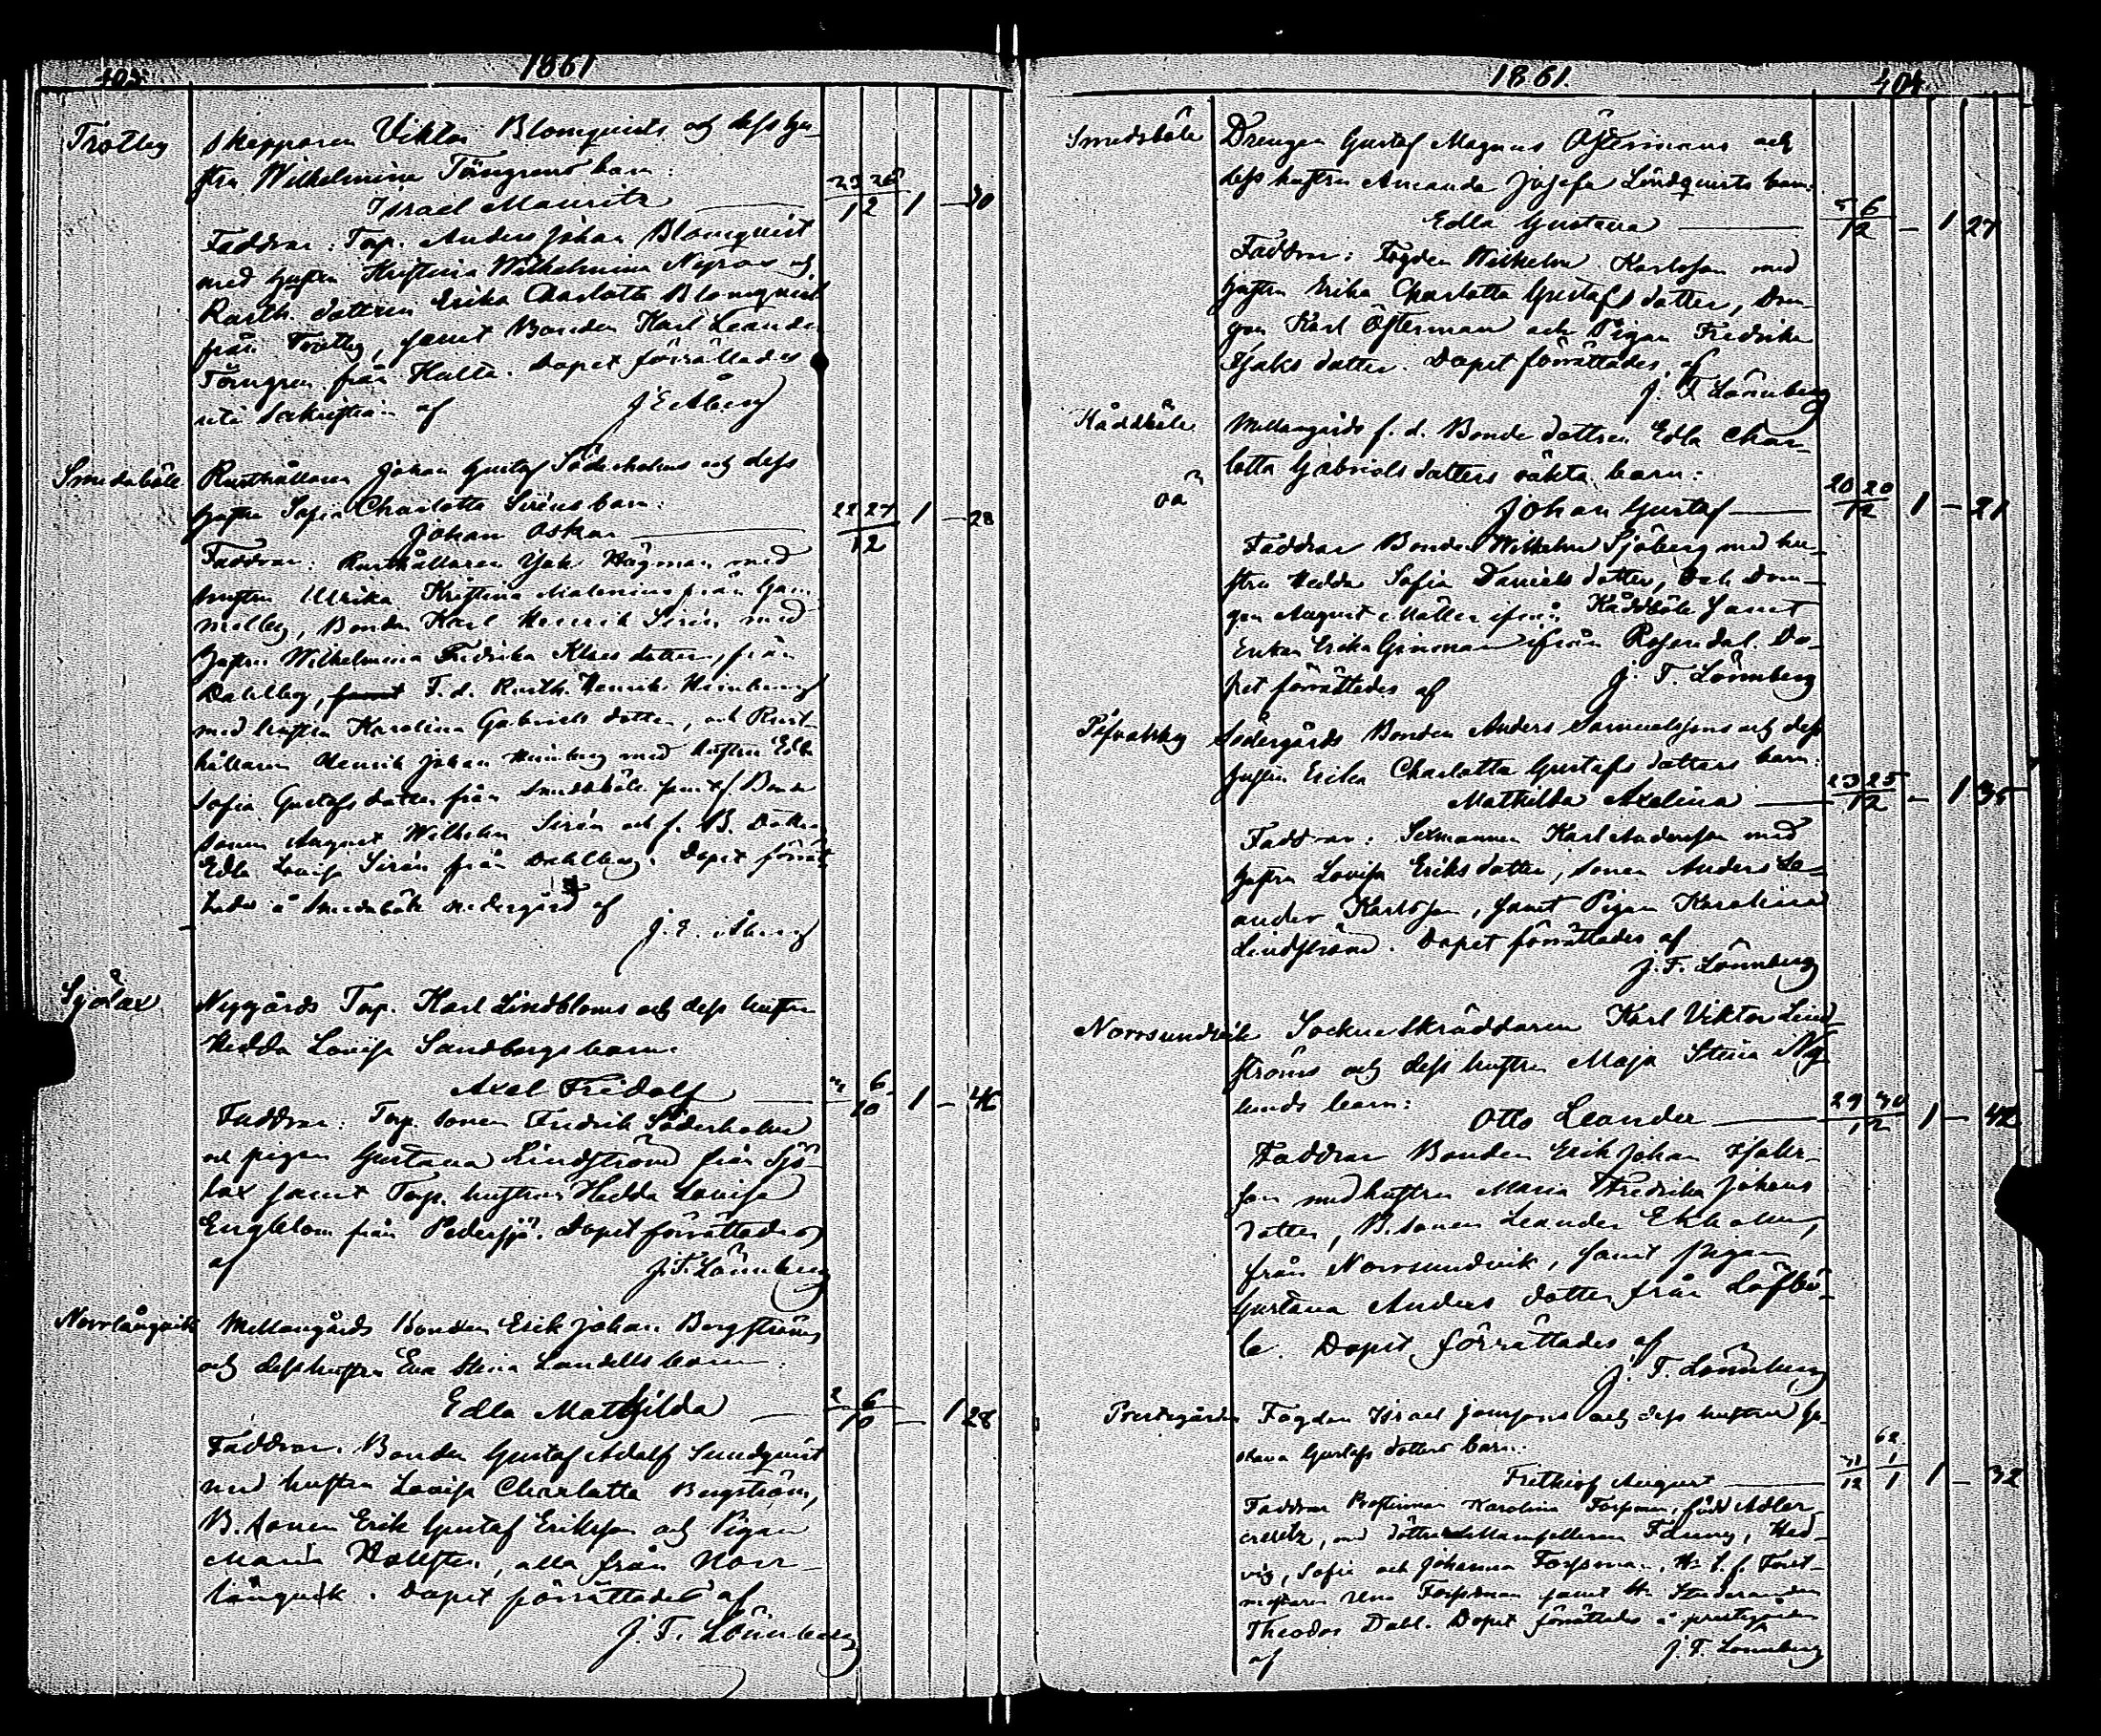 403.
1861
Trotby
Skepparen Viktor Blomquists och dess hu-
stru Wilhelmina Törngrens barn:
Israel Mauritz
23 26
12 1 — 30
Faddrar: Torp. Anders Johan Blomqvist
med hustru Kristina Wilhelmina Nyroos och
Rusth. dottren Erika Charlotta Blomqvist
från Trotby, samt Bonden Karl Leander
Törngren från Hulta. Dopet förrättades
uti Sakristian af J E Åberg
Smedsböle
Rusthållaren Johan Gustaf Söderholms och dess
hustru Sofia Charlotta Siréns barn:
Johan Oskar
22 27 1 — 28
12
Faddrar: Rusthållaren Isak Hägman med
hustru Ulrika Kristina Malenius från Gam-
melby, Bonden Karl Henrik Sirén med
hustru Wilhelmina Fredrika Klas dotter, från
Dahlby, F. d. Rusth. Henrik Heimberg
med hustru Karolina Gabriels dotter, och Rust-
hållaren Henrik Johan Heimberg med hustru Edla
Sofia Gustafs dotter från Smedsböle samt Bonde
sonen August Wilhelm Sirén och f. B. Dottren
Edla Lovisa Sirén från Dahlby. Dopet förrät-
tades å Smedsböle nedergård af
J. E. Åberg
Sjölax
Nygårds Torp. Karl Lindbloms och dess hustru
Hedda Lovisa Sandbergs barn:
Axel Fridolf
6
10 1 — 46
Faddrar: Torp. sonen Fredrik Söderholm
och pigan Gustava Lindström från Sjö-
lax samt Torp. hustrun Hedda Lovisa
Engblom från Pedersjö. Dopet förrättades
af J. F. Lönnberg
Norrlångvik
Mellangårds Bonden Erik Johan Bergströms
och dess hustru Eva Stina Landells barn:
Edla Mathilda
2 6
10 — 1 28
Faddrar. Bonden Gustaf Adolf Sundqvist
med hustru Lovisa Charlotta Bergström,
B. sonen Erik Gustaf Eriksson och Pigan
Maria Hallsten, alla från Norr-
långvik. Dopet förrättades af
J. F. Lönnberg
1861.
404.
Smedsböle
Drengen Gustaf Magnus Östermans och
dess hustru Amanda Josefa Lindqvists barn:
Edla Gustava
5 6
12 — 1 27
Faddrar: Fogden Wilhelm Karlsson med
hustru Erika Charlotta Gustafs dotter, Dren-
gen Karl Österman och Pigan Fredrika
Isaks dotter. Dopet förrättades af
J. F. Lönnberg
Kåddböle
Mellangårds f. d. Bonde dottren Edla Char-
lotta Gabriels dotters oäkta barn:
oä
Johan Gustaf
20 20
12 1 — 21
Faddrar Bonden Wilhelm Sjöberg med hu-
stru Hedda Sofia Daniels dotter, och Dren-
gen August Möller ifrån Kåddböle samt
Enkan Erika Ginman ifrån Rosendal. Do-
pet förrättades af J. F. Lönnberg
Påfvalsby
Södergårds Bonden Anders Samuelssons och dess
hustru Erika Charlotta Gustafs dotters barn:
Mathilda Axelina
23 25
12 — 1 36
Faddrar: Sexmannen Karl Andersson med
hustru Lovisa Eriks dotter, sonen Anders Le-
ander Karlsson, samt Pigan Karolina
Lindström. Dopet förrättades af
J. F. Lönnberg
Norrsundvik
Sockneskräddaren Karl Viktor Lind-
ströms och dess hustru Maja Stina Ny-
lunds barn:
Otto Leander
29 30
12 1 — 42
Faddrar Bonden Erik Johan Isaks-
son med hustru Maria Fredrika Johans
dotter, B. sonen Leander Ekholm,
från Norrsundvik, samt pigan
Gustava Anders dotter från Löfbö-
le. Dopet förrättades af
J. F. Lönnberg
Prestegården
Fogden Israel Janssons och dess hustru Jo-
hana Gustafs dotters barn:
Frithiof August
62
31 1
12 1 1 — 32
Faddrar Prostinnan Karolina Forssman, född Adler-
creutz, med döttrar Mamsellerna Fanny, Hed-
vig, Sofie och Johanna Forssman, Hr t. f. Forst-
mästaren Uno Forssman samt Hr Studeranden
Theodor Dahl. Dopet förrättades å prestgården
af J. F. Lönnberg